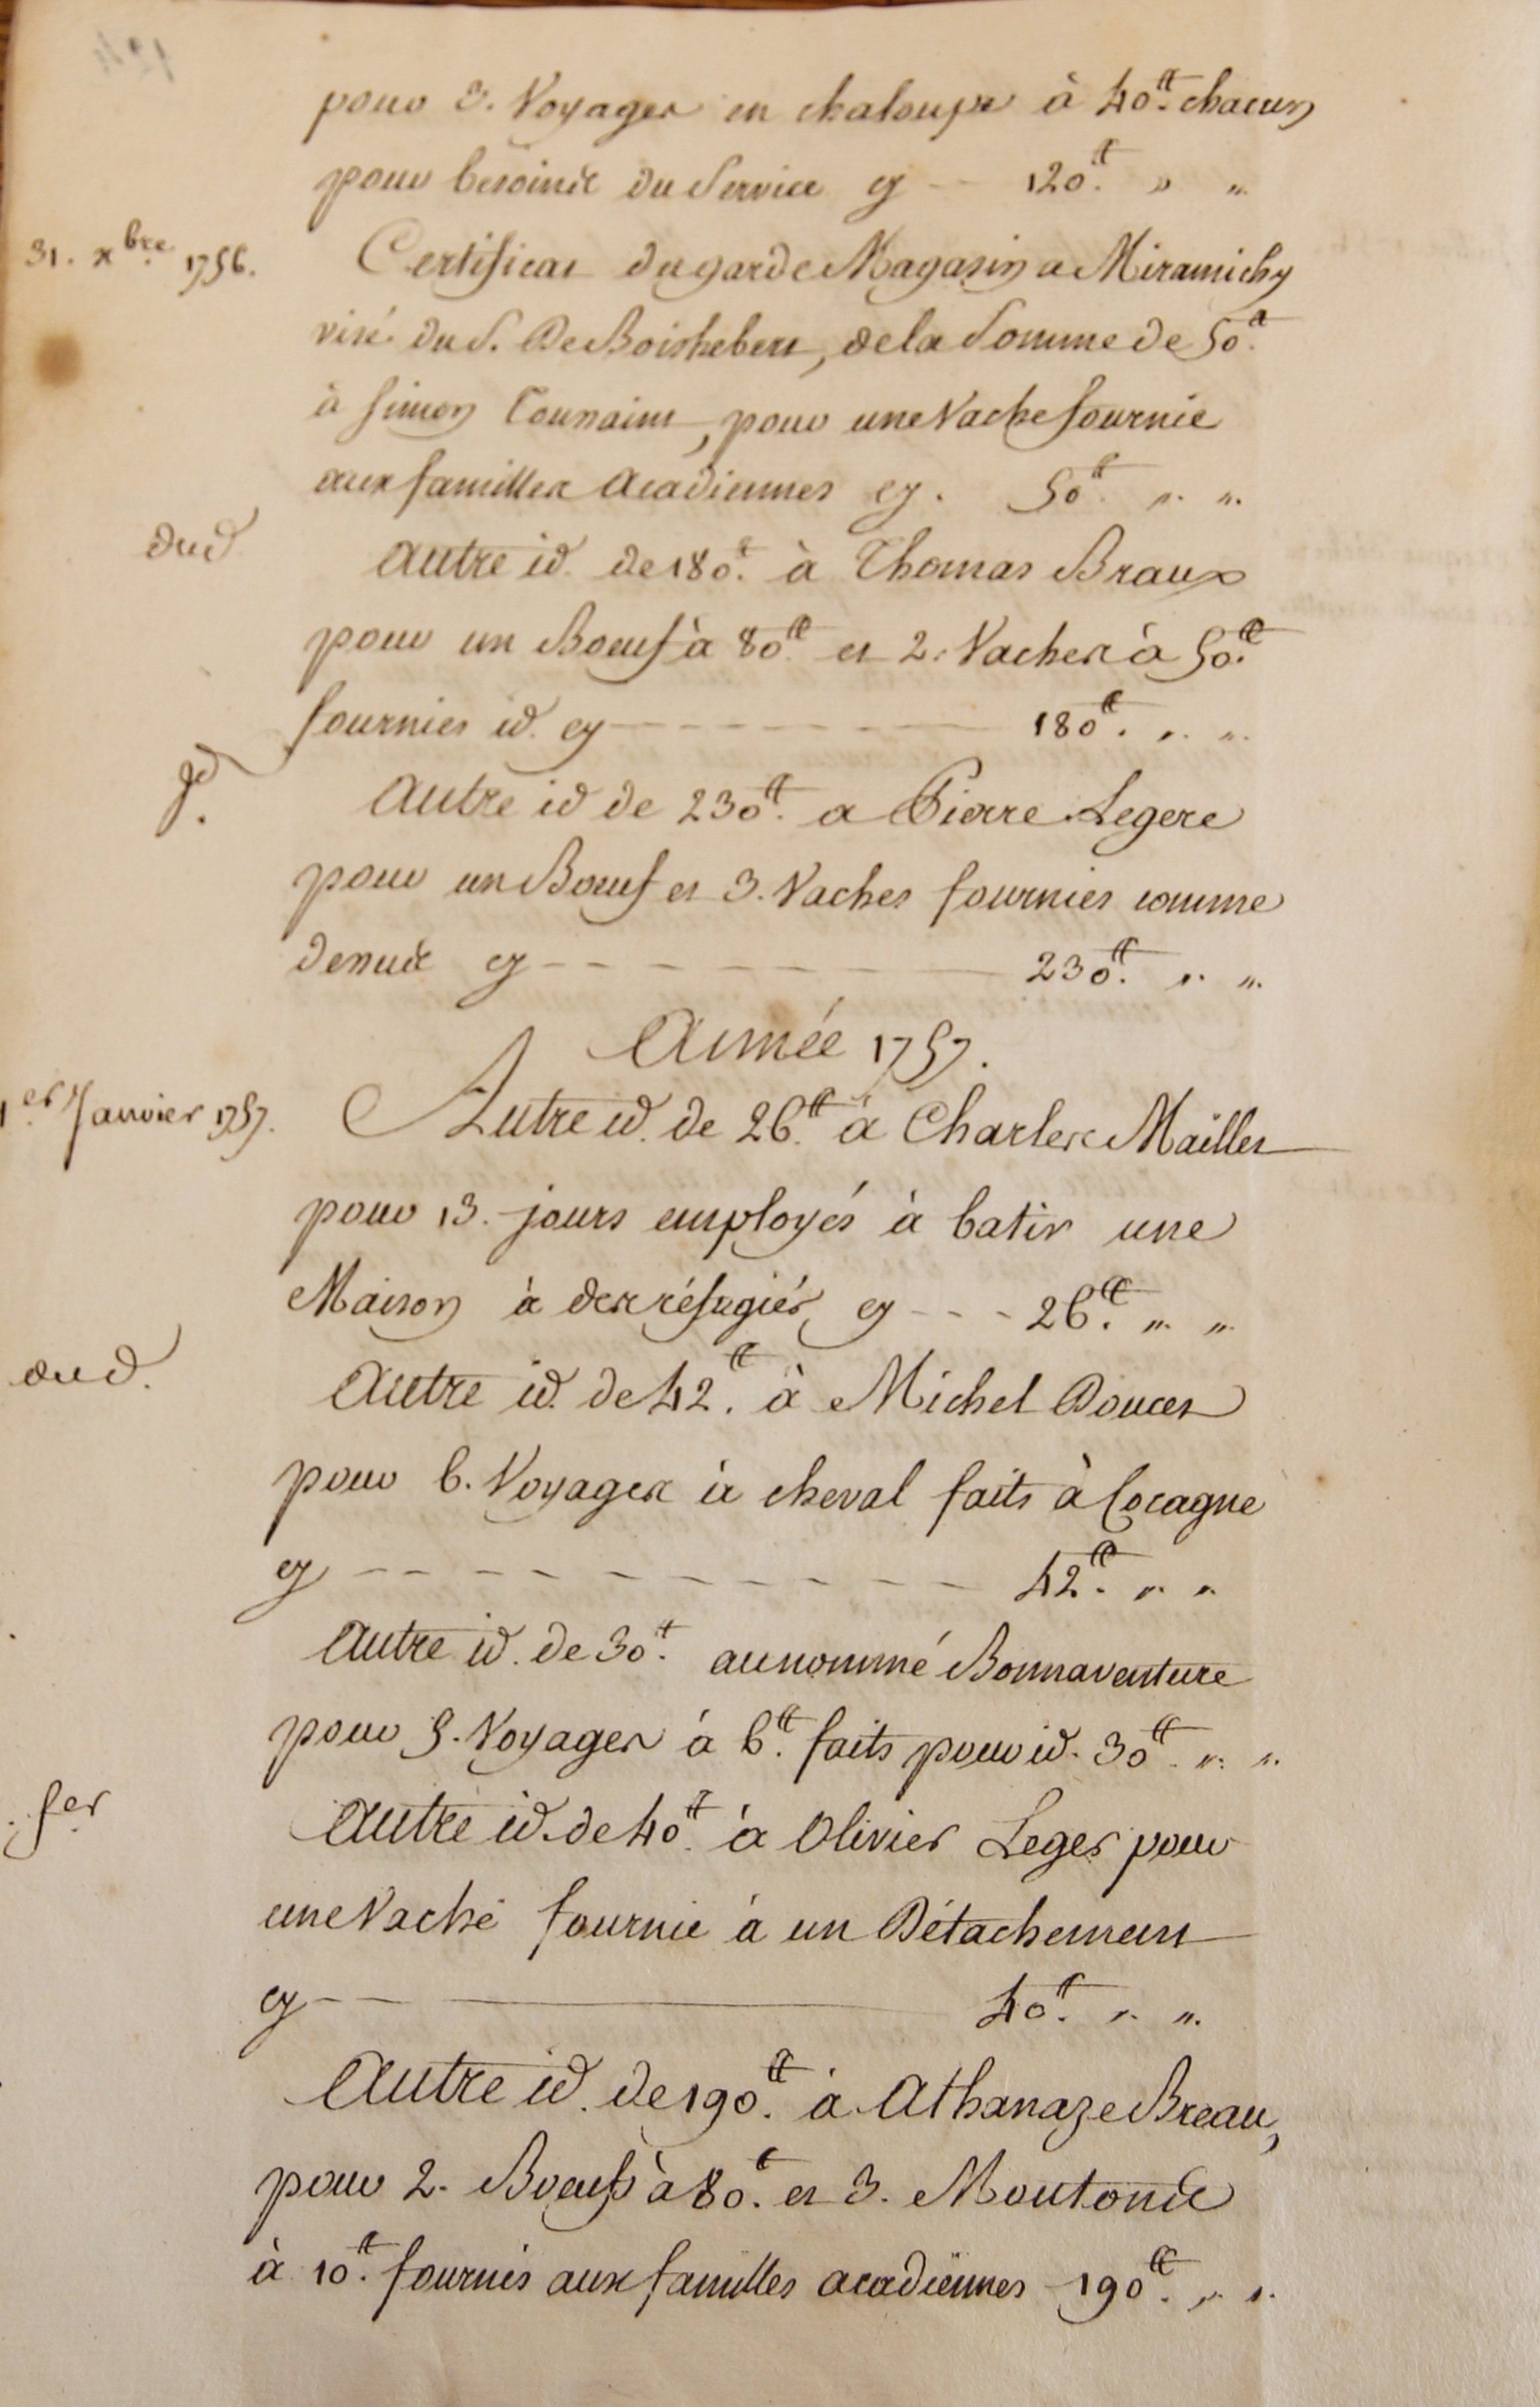 pour 3. Voyages en chaloupe à 40.tt chacun
pour besoins du Service cy -- 120.tt " "
31. xbre 1756.
Certificat du garde Magasin a Miramichy
visé du S. De Boishebert, de la Somme de 50.tt
à Simon , pour une Vache fournie
aux familles Acadiennes cy. 50.tt " "
dud
Autre id. de 180.tt à Thomas Braux
pour un Boeuf à 80.tt et 2. Vaches à 50.tt
fournies id. cy ------ 180.tt " "
Autre id de 230.tt a Pierre Legere
pour un Boeuf et 3. Vaches fournies comme
dessus cy ------ 230.tt " "
Année 1757.
1.er Janvier 1757.
Autre id. de 26.tt à Charles Maillet
pour 13. jours employés à batir une
Maison à des réfugiés, cy --- 26.tt " "
dud.
Autre id. de 42.tt à Michel Doucet
pour 6. Voyages à cheval faits à Cocagne
cy ------------ 42.tt " "
Autre id. de 30.tt au nommé Bonnaventure
pour 5. Voyages à 6.tt faits pour id. 30.tt " "
Autre id. de 40.tt à Olivier Leger pour
une Vache fournie à un Détachement
cy ------ 40.tt " "
Autre id. de 190.tt à Athanaze Breau,
pour 2. Boeufs à 80.tt et 3. Moutons
à 10.tt fournis aux familles acadiennes 190.tt " "